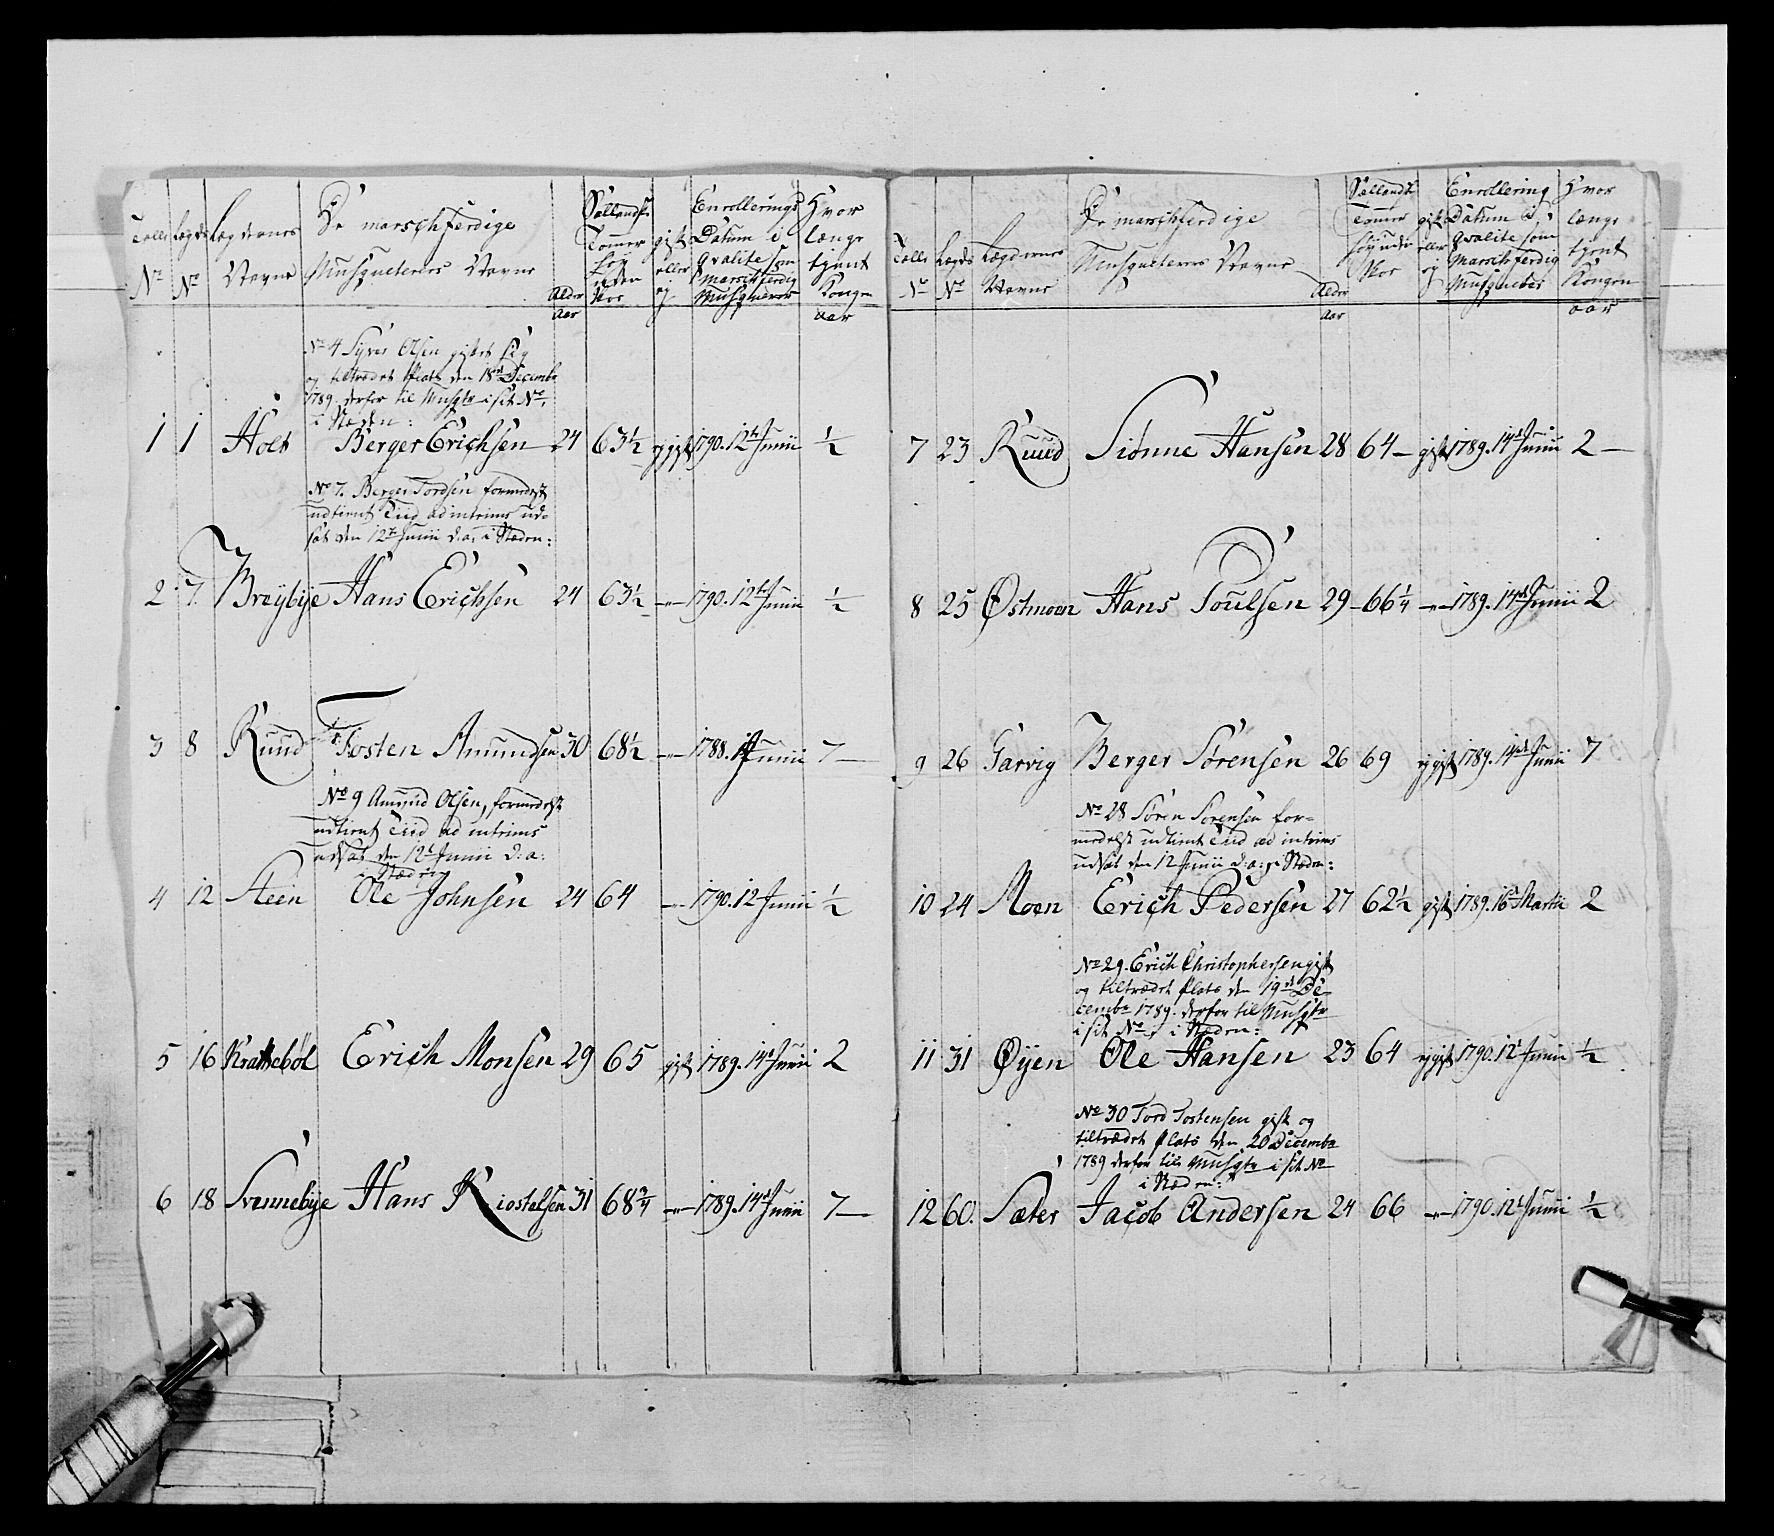 Tall No
Lægds No
Lægdernes Navne
De marschferdige Musqueterers Navne
Alder Aar
Sællandsk Tommer Høy uden Skoe
gift eller ej
Enrollerings Datum i Qvalite som Marschferdig Musqueterer
Hvor længe tjent Kongen aar
No 4 Syver Olsen giftet sig
og tiltrædet Plads den 18de Decembr
1789. derfor til Musqtr i sit No,
i Stæden:
1 1 Holt Berger Erichsen 24 63½ ejgift 1790. 12te Junii ½
No 7. Berger Tordsen formedelst
udtient Tiid ad intrims ud-
sat den 12te Junii d:a: i Stæden:
2 7. Breybye Hans Erichsen 24 63½ —"— 1790. 12te Junii ½
3 8 Ruud Tosten Amundsen 30 68½ —"— 1788. 14 Junii 7—
No 9 Amund Olsen, formedelst
udtient Tiid ad intrims
udsat den 12te Junii d:a:
i Stæden
4 12 Steen Ole Johnsen 24 64 —"— 1790. 12 Junii ½
5 16 Krattebøl Erich Monsen 29 65 gift 1789. 14de Junii 2
6 18 Svennebye Hans Kiostelsen 31 68¾ —"— 1789. 14de Junii 7—
Tall No
Lægds No
Lægdernes Navne
De marschferdige Musqueterers Navne
Alder Aar
Sællandsk Tommer Høy uden Skoe
gift eller ej
Enrollering Datum i Qvalite som Marschferdig Musqueter
Hvor længe tjent Kongen aar
7 23 Ruud Siønne Hansen 28 64— gift 1789. 14de Junii 2—
8 25 Østmoen Hans Poulsen 29 66¼ —"— 1789. 14de Junii 2
9 26 Garvig Berger Sørensen 26 69 ejgift 1789. 14de Junii 7
No 28 Søren Sørensen for-
medelst udtient Tiid ad intrims
udsat den 12 Junii d:a: i Stæden:
10 24 Moen Erich Pedersen 27 62½ gift 1789. 16de Martii 2
No 29. Erich Christophersen gift
og tiltrædet Plads den 19de De-
cembr 1789. derfor til Musqtr
i sit No, i Stæden:
11 31 Øyen Ole Hansen 23 64 ejgift 1790. 12te Junii ½
No 30 Tord Tostensen gift og
tiltrædet Plads den 20 Decembr
1789 derfor til Musqtr i sit No
i Stæden:
12 60. Sæter Jacob Andersen 24 66 —"— 1790. 12te Junii ½